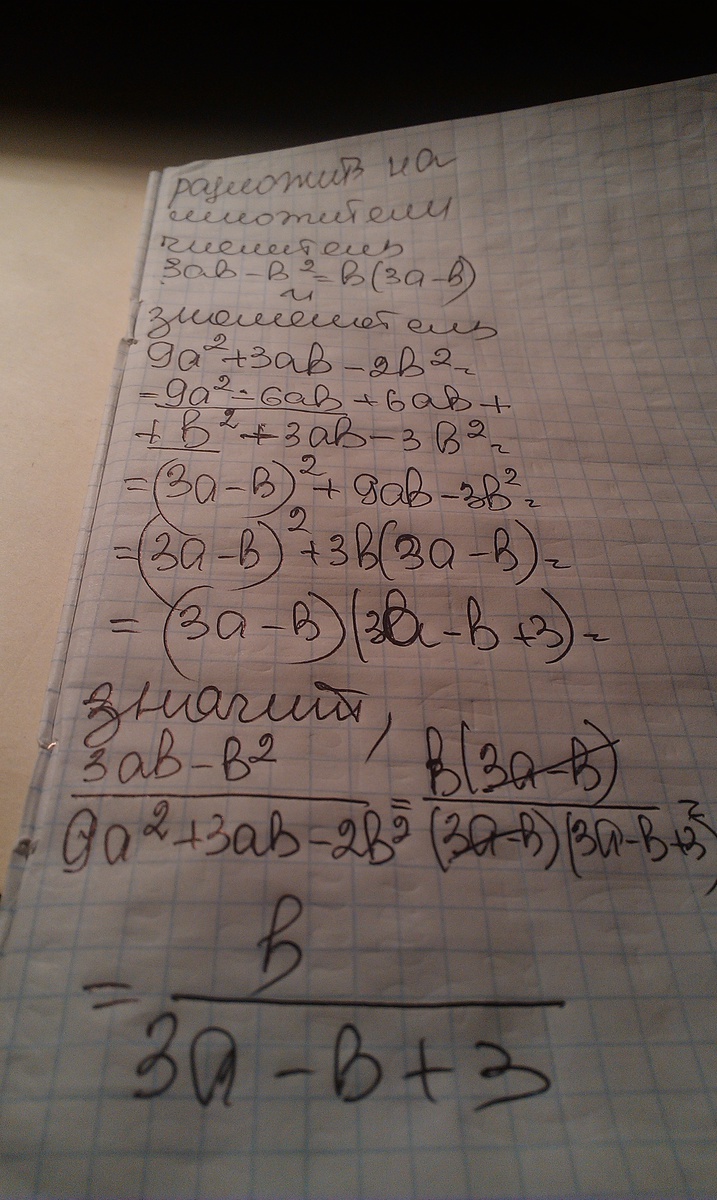 разложив на
множители
числитель
3ab-b²=b(3a-b)
и
знаменатель
9a²+3ab-2b²=
=9a²-6ab+6ab+
+b²+3ab-3b²=
=(3a-b)²+9ab-3b²=
=(3a-b)²+3b(3a-b)=
=(3a-b)(3a-b+3)=
значит,
3ab-b²/9a²+3ab-2b² = b(3a-b)/(3a-b)(3a-b+3) =
= b/3a-b+3